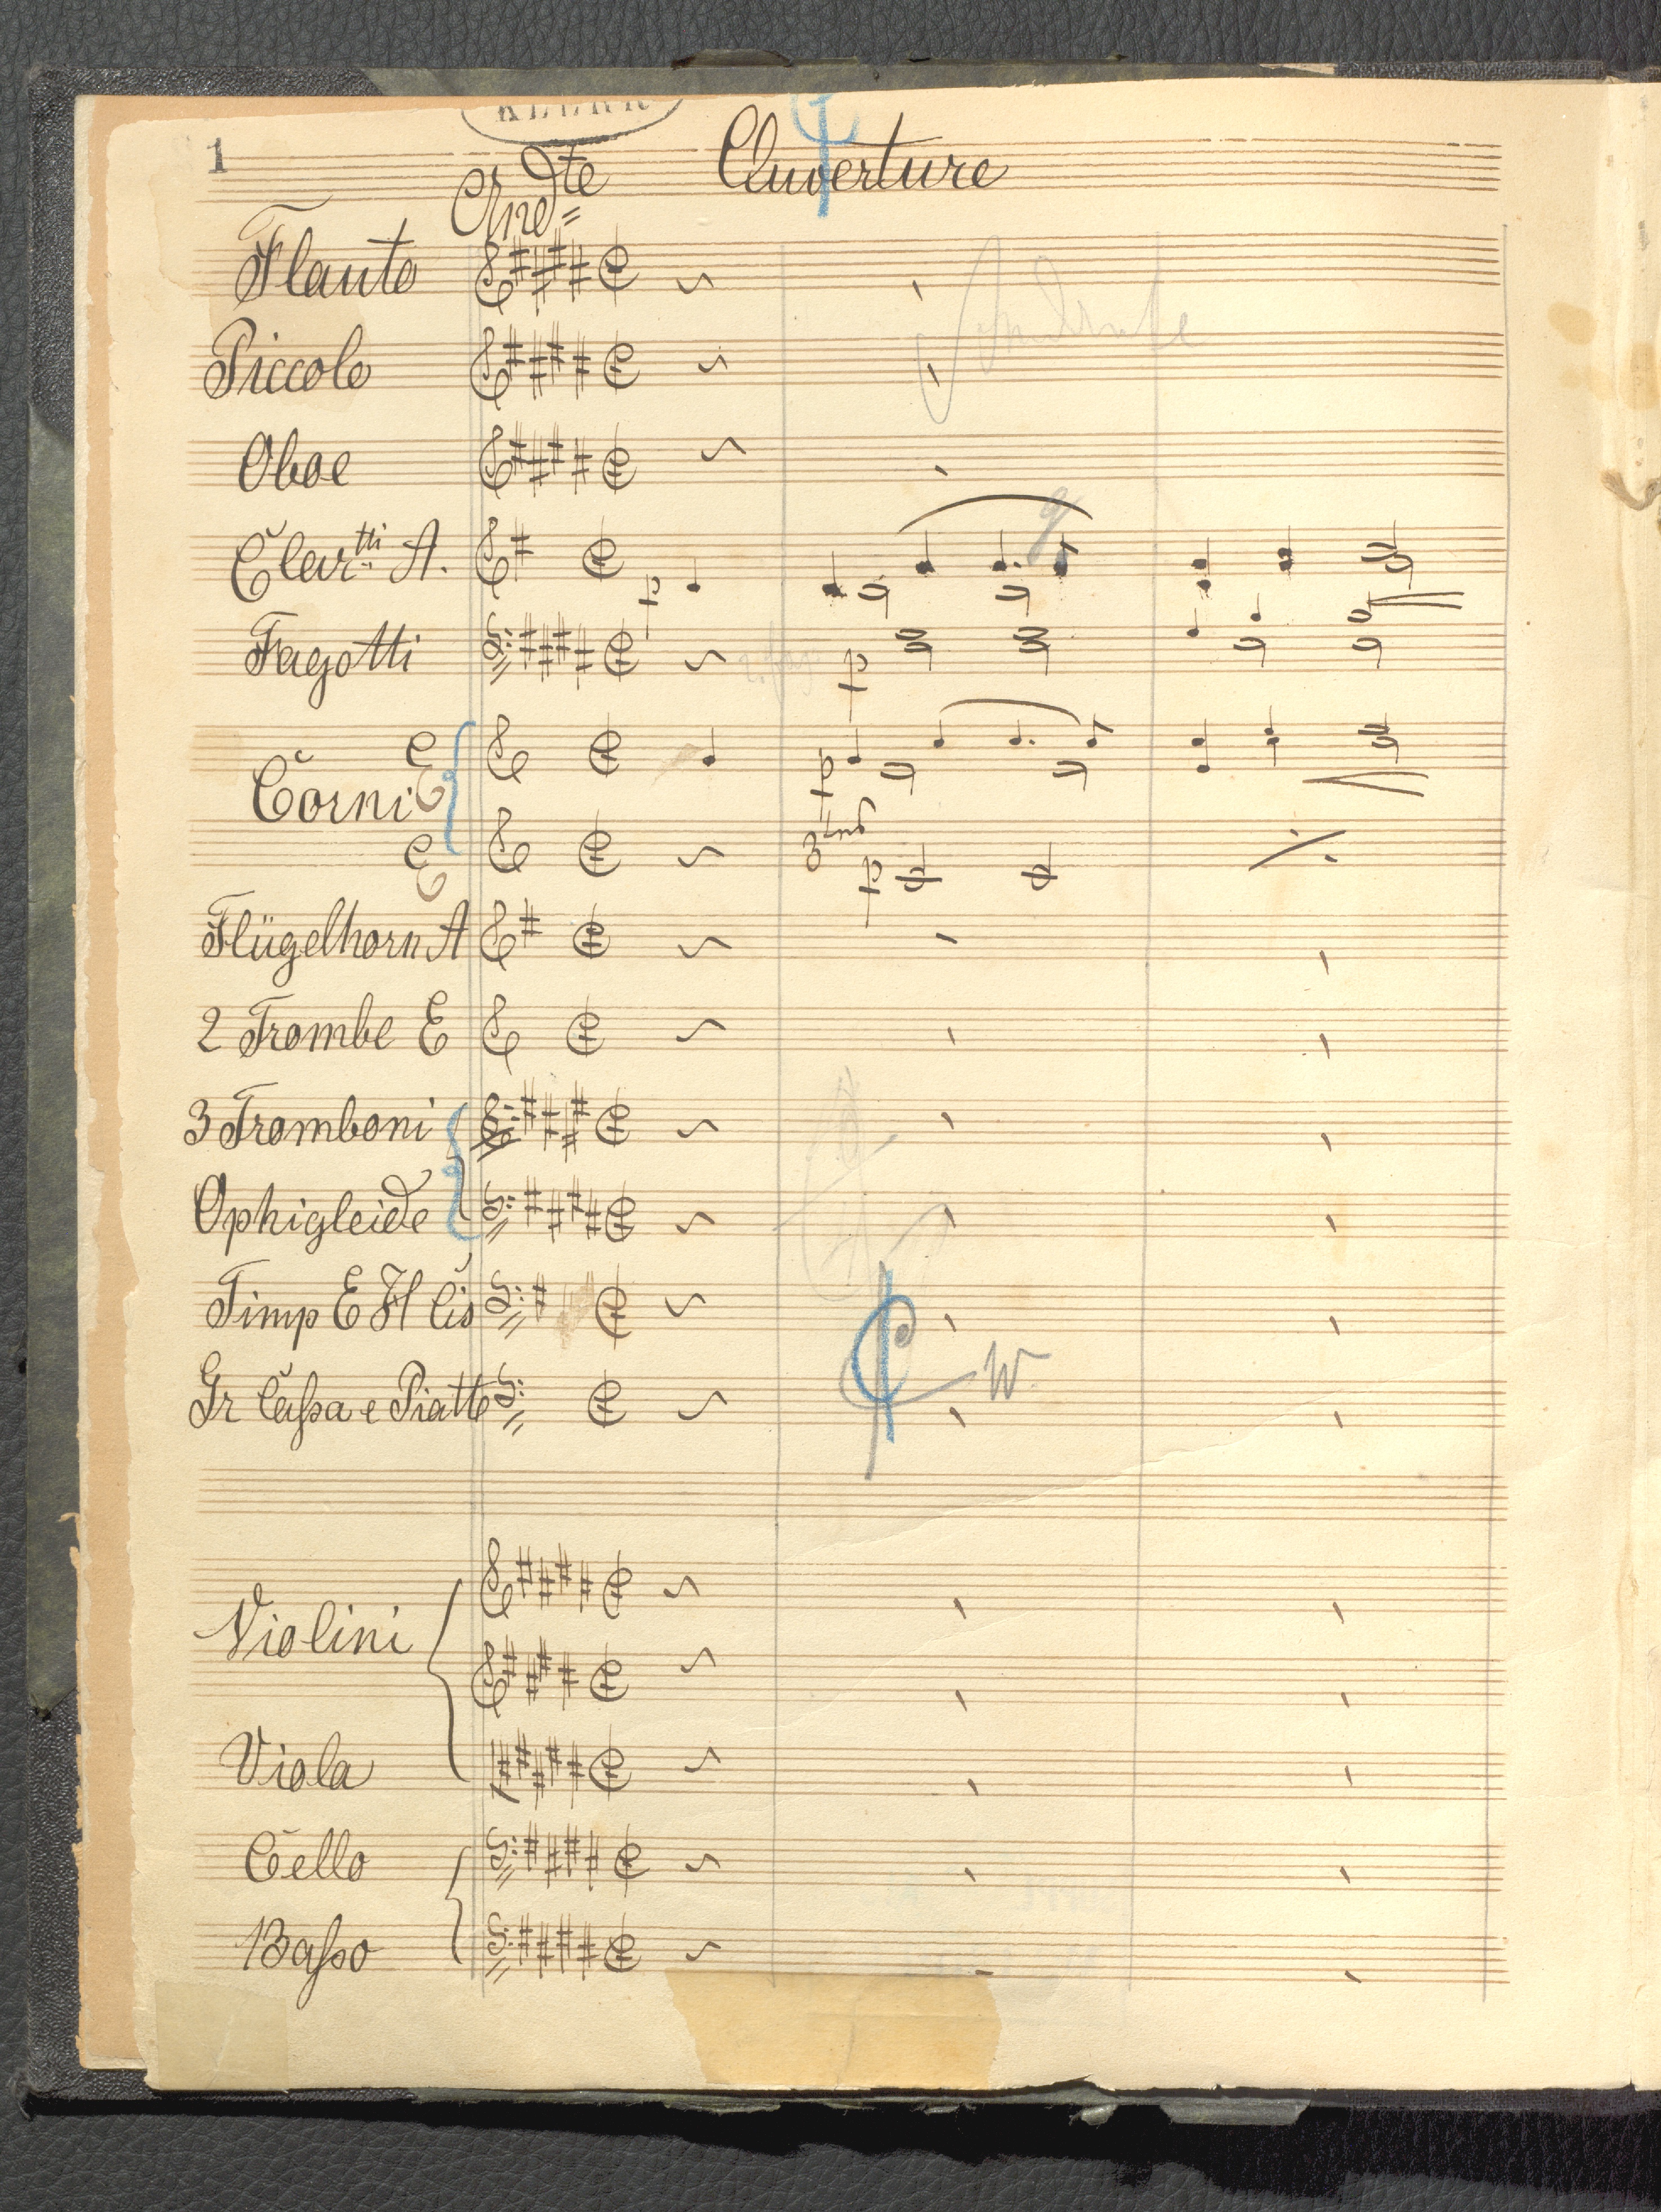 1
Ouverture
And^te
Flauto
Piccolo
Oboe
Clar^tti A.
p
Fagotti
p
Corni E
E
p
3
p
Flügelhorn A
2 Trombe E
3 Tromboni
Ophigleide
Timp E H Cis
Gr Cassa e Piatti
W
Violini
Viola
Cello
Basso